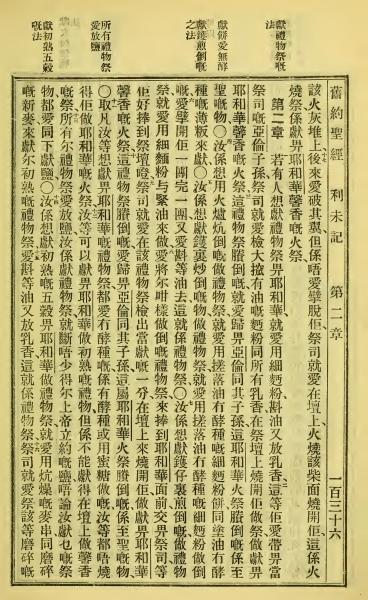 獻禮物祭嘅
法
獻餅愛無酵
獻鑊煎倒嘅
之法
所有禮物祭
愛放鹽
獻初熟五穀
嘅法
舊約聖經 利未記 第二章 一百三十六
該火灰堆上、後來愛破其翼、但係唔愛擘脫佢、祭司就愛在壇上火燒該柴面燒開佢、這係火
燒祭、係獻畀耶和華馨香嘅火祭、
第二章 若有人想獻禮物祭畀耶和華、就愛用細麪粉、㪺油又放乳香、這等佢愛帶畀當
祭司嘅亞倫子孫、祭司就愛檢大揸有油嘅麪粉、同所有乳香、在祭壇上燒開佢、做祭獻畀
耶和華馨香嘅火祭、這禮物祭賸倒嘅就愛歸畀亞倫同其子孫、這耶和華火祭賸倒嘅、係至
聖嘅物、〇汝係想獻用火爐炕倒嘅做禮物祭、就愛用搓落油冇酵種嘅細麪粉餅、同塗油冇酵
種嘅薄粄來獻、〇汝係想獻鑊裏炒倒嘅物做禮物祭、就愛用搓落油冇酵種嘅細麪粉做倒
嘅、愛擘開佢一團完一團、又愛㪺等油去、這就係禮物祭、〇汝係想獻鑊仔裏煎倒嘅、做禮物
祭、就愛用細麪粉與緊油來做、愛將尔咁樣做倒嘅禮物祭、來捧到耶和華面前交畀祭司等
佢好捧到祭壇、噔祭司就愛在該禮物祭檢出當獻嘅一分、在壇上來燒開佢、做獻畀耶和華
馨香嘅火祭、這禮物祭賸倒嘅就愛歸畀亞倫同其子孫、這屬耶和華火祭賸倒嘅、係至聖物、
〇取凡汝等獻畀耶和華嘅禮物祭、都愛冇酵種做嘅、係有酵種或用蜜糖做嘅、汝等都唔燒
得佢做耶和華嘅火祭、汝等可以獻畀耶和華做初熟嘅禮物、但係不能獻得在壇上做馨香
嘅祭、所有尔禮物祭、愛放鹽、汝係獻禮物祭就斷唔少得尔上帝立約嘅鹽、唔論汝獻乜嘅祭
物、都愛同下獻鹽、〇汝係想獻初熟嘅五穀畀耶和華做禮物祭、就愛用炕燥嘅麥串、同磨碎
嘅新麥來獻、尔初熟嘅禮物祭、愛㪺等油又放乳香、這就係禮物祭、祭司就愛祭該等磨碎嘅